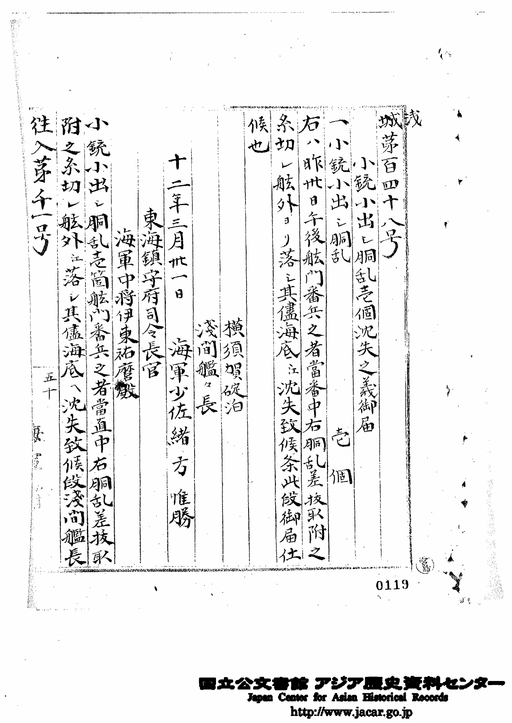 浅
城第百四十八号
小銃小出シ胴乱壱個沈失之義御届
一小銃小出シ胴乱　壱個
右ハ昨卅日午後舷門番兵之者當番中右胴乱差抜取附之
糸切レ舷外ヨリ落シ其儘海底江沈失致候条此段御届仕
候也
横須賀碇泊
浅間艦々長
十二年三月卅一日　海軍少佐緒方惟勝
東海鎮守府司令長官
海軍中将伊東祐麿殿
小銃小出シ胴乱壱箇舷門番兵之者當直中右胴乱差抜取
附之糸切レ舷外江落シ其儘海底ヘ沈失致候段浅間艦長
往入第千一号
五十
海軍省
0119
国立公文書館 アジア歴史資料センター
Japan Center for Asian Historical Records
http://www.jacar.go.jp